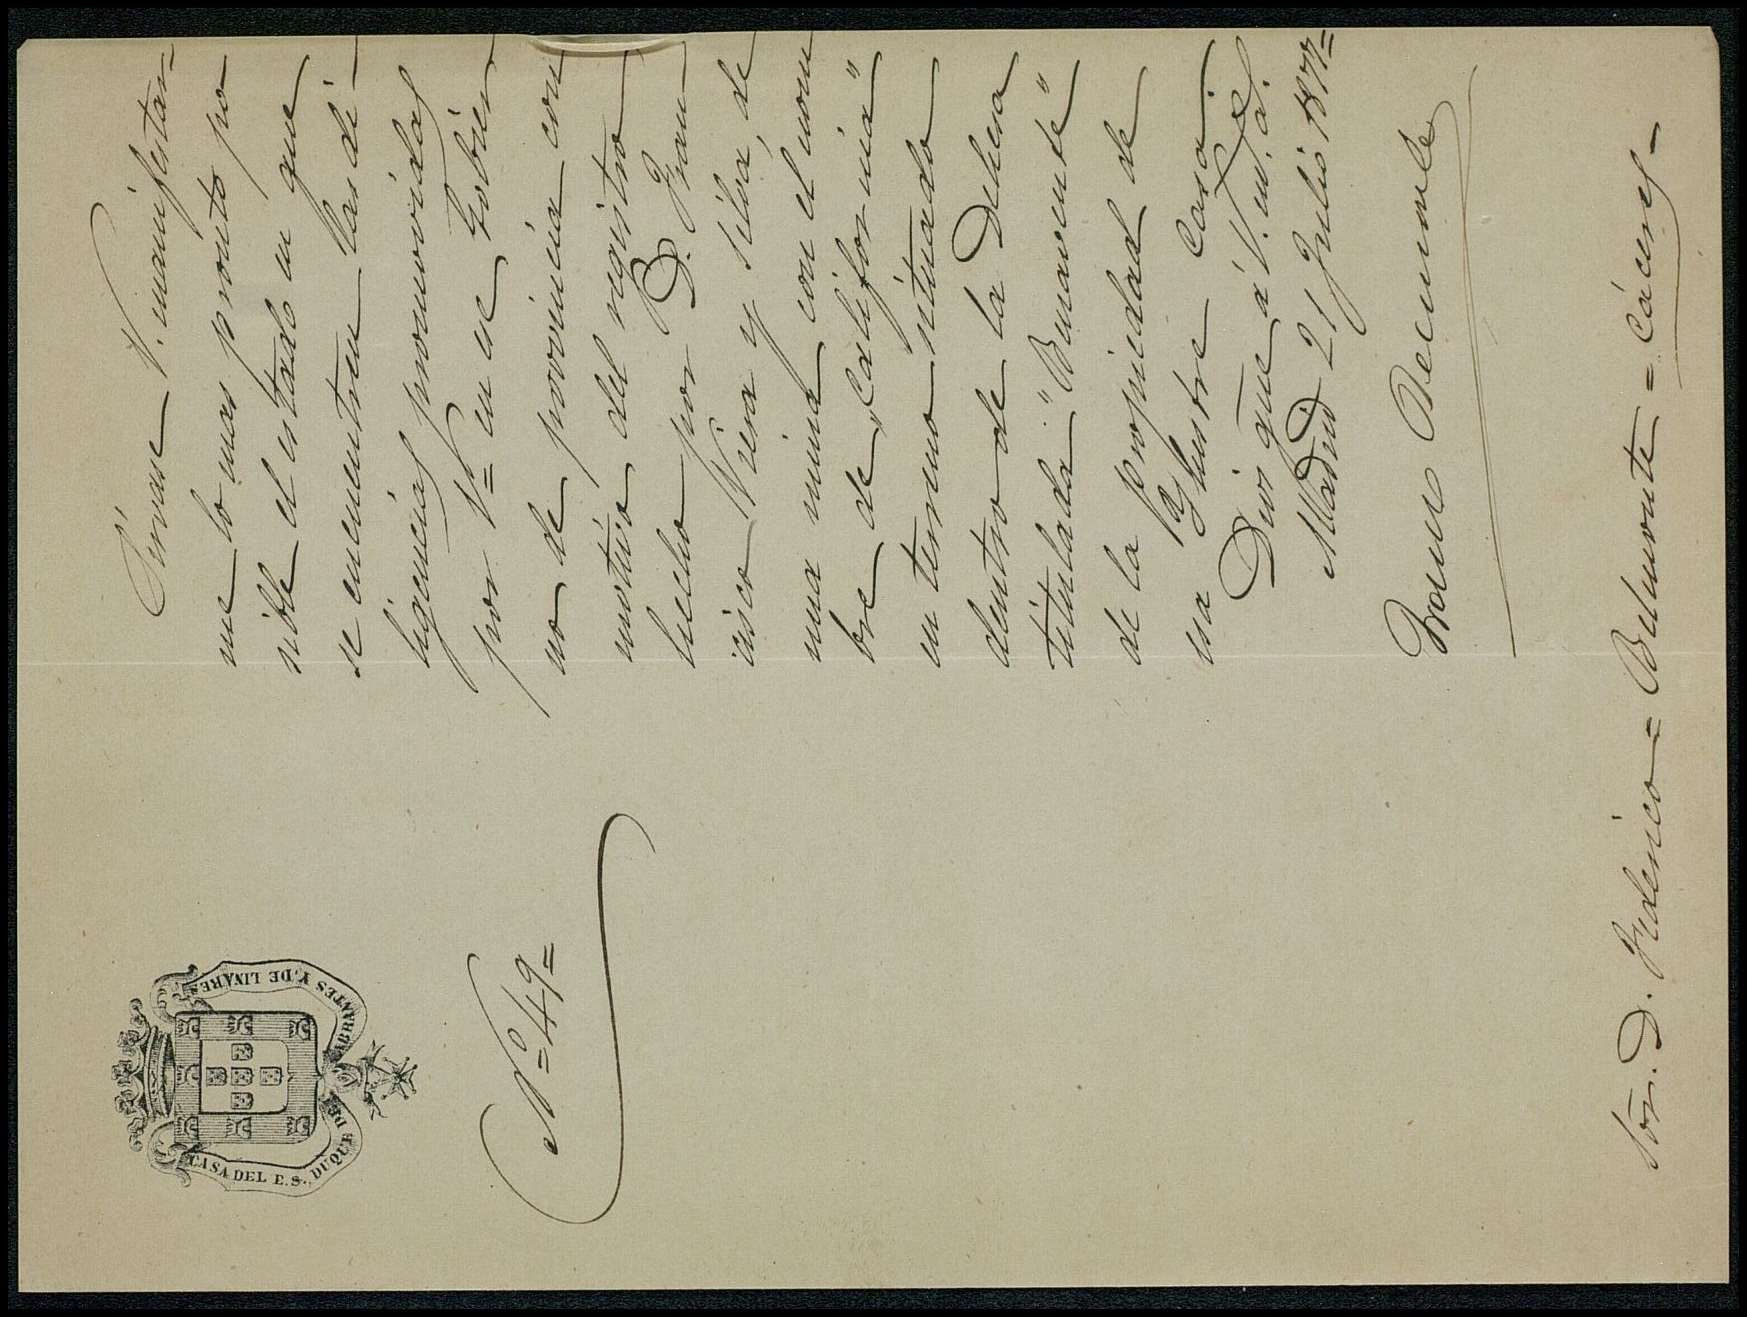 CASA DEL E.S. DUQUE DE ABRANTES Y DE LINARES
Nº=49=
Sírvase V. manifestar=
me lo mas pronto po
sible el estado en que
se encuentren las di-
ligencias promovidas
por V= en ese Gobier
no de provincia con
motivo del registro
hecho por D. Fran
cisco Neira y Silva, de
una mina con el nom
bre de "California"
en terreno situado
dentro de la Dehesa
titulada "Benavente"
de la propiedad de
esa Ylustre Casa.
Dios güe á V. m. a.
Madrid 21 Julio 1877=
Franco
Sõr. D. Federico = Belmonte = Cáceres -